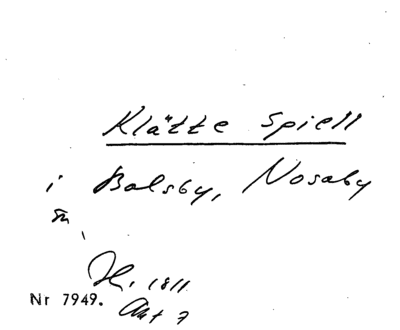 Klätte Spiell
i Balsby, Nosaby
Sn
H. 1811
Nr 7949. Akt 7